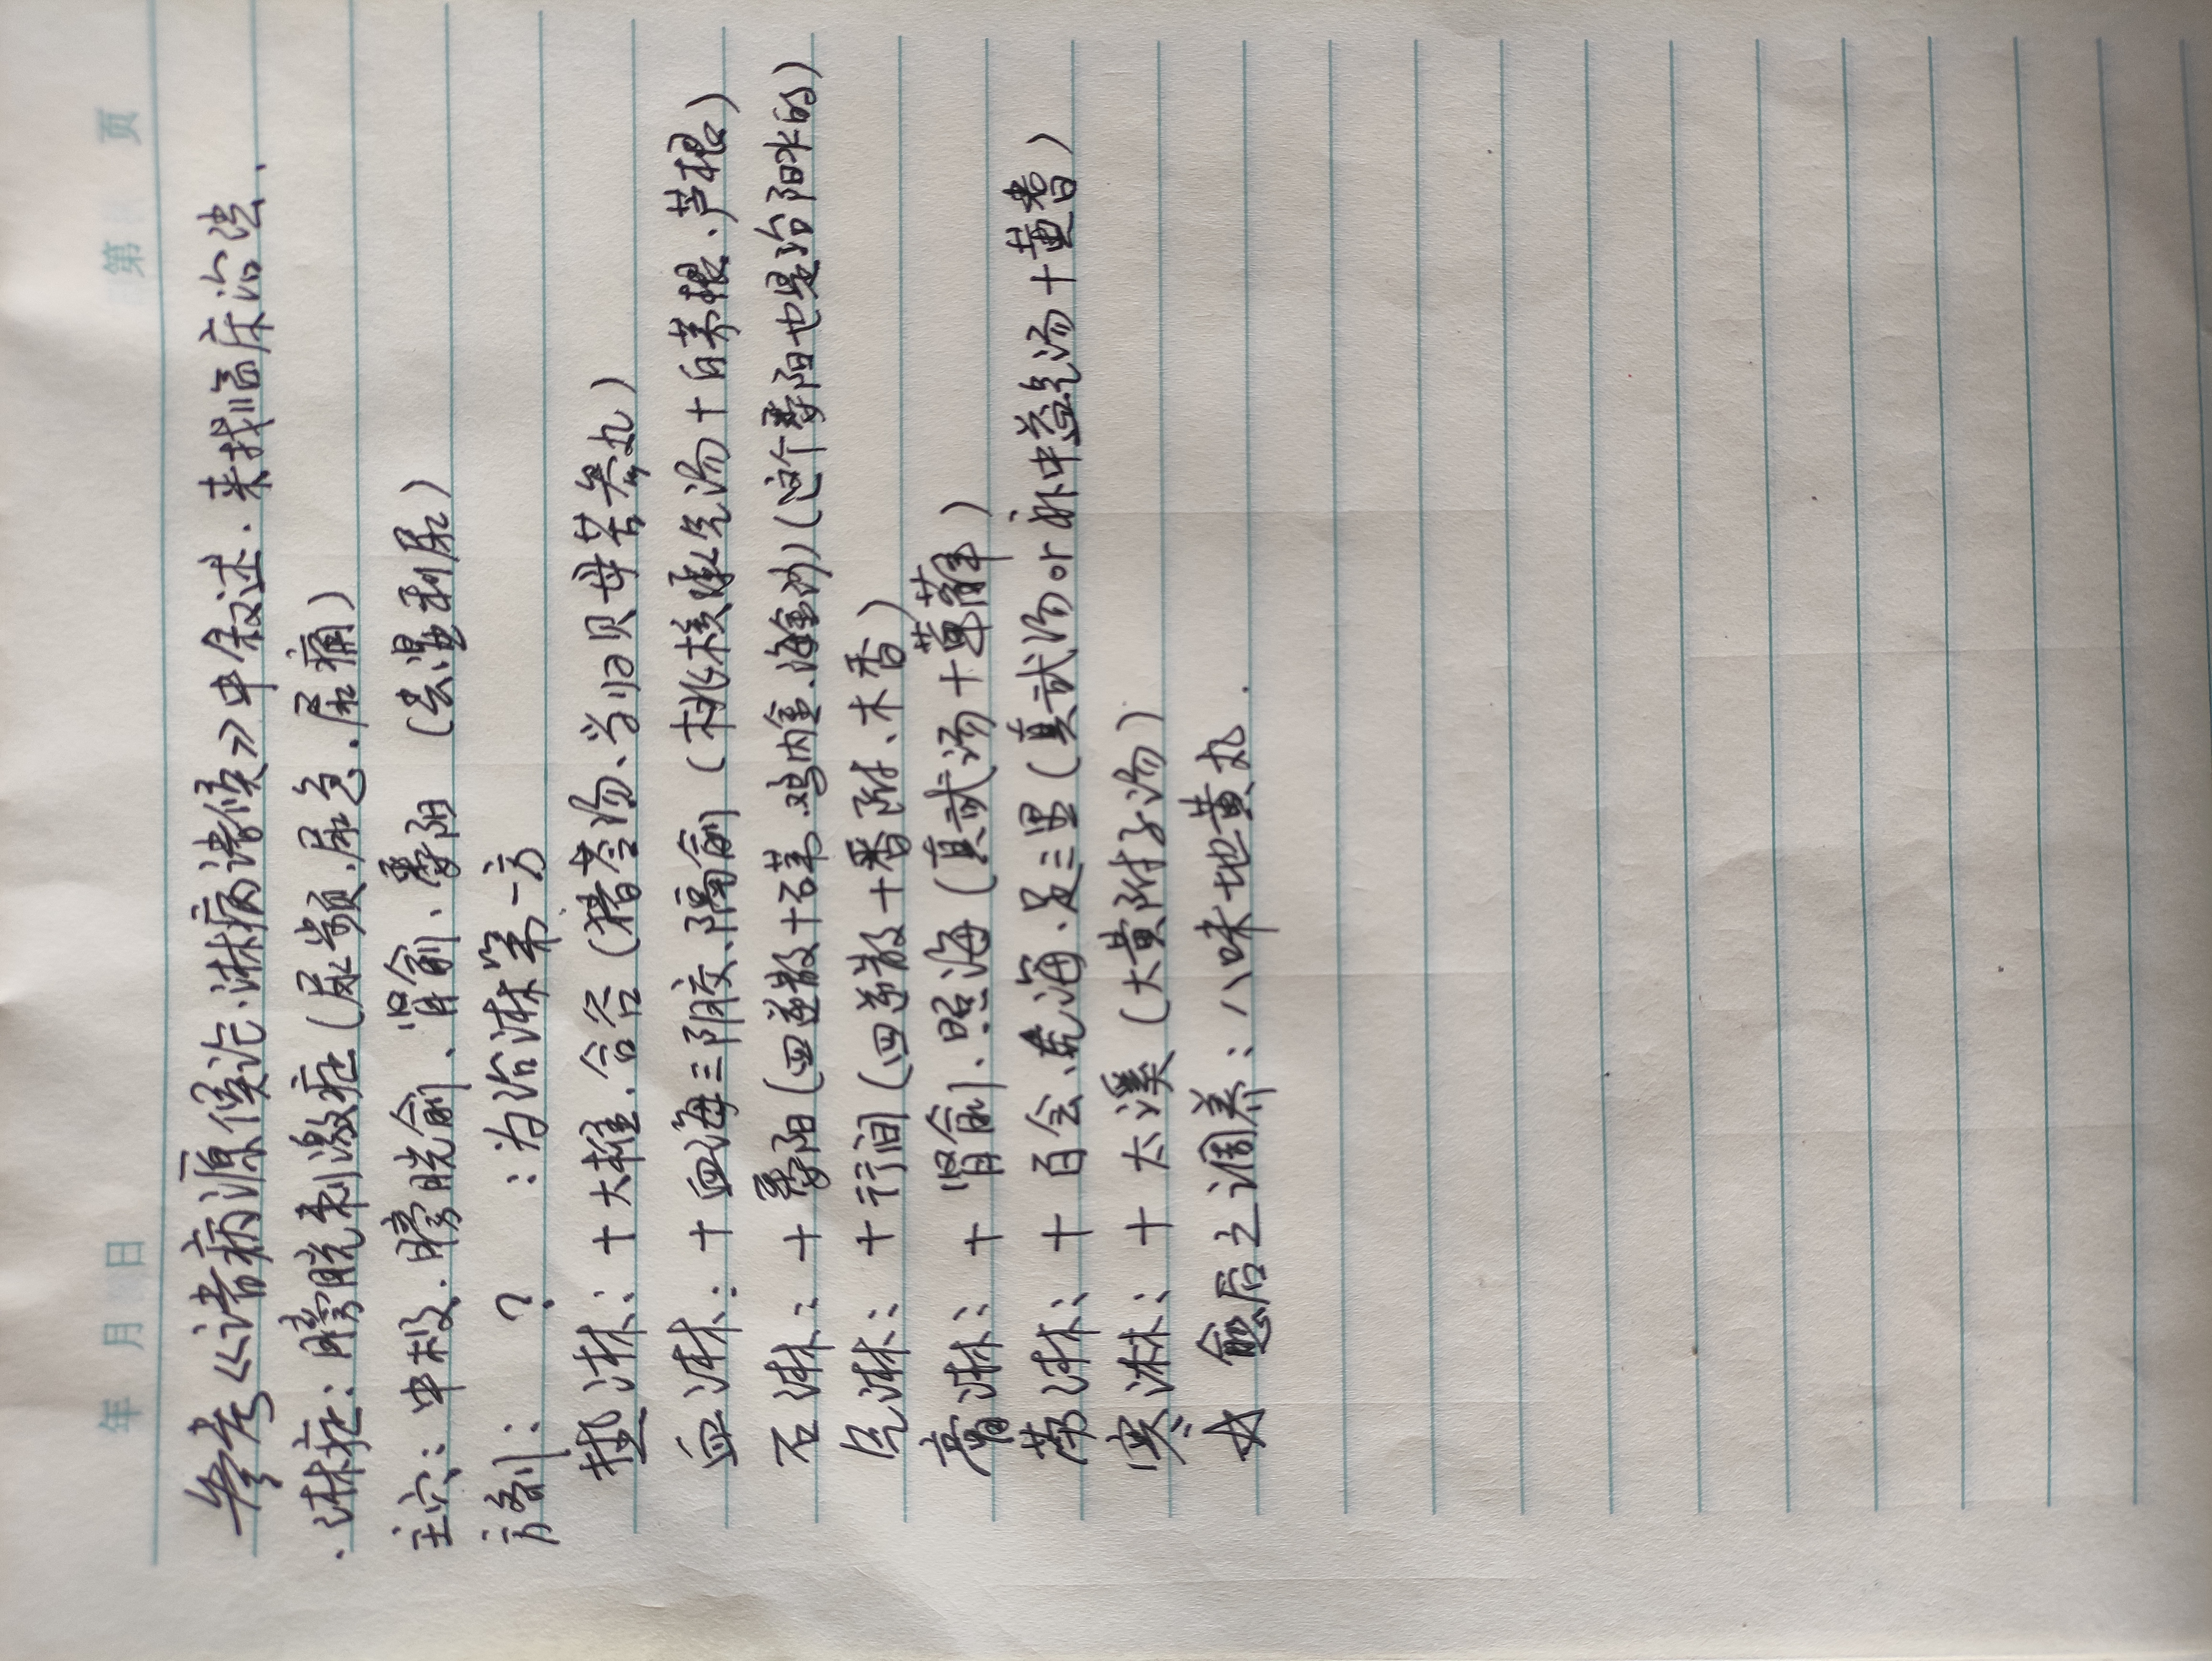 年 月 日 第 页
参考《诸病源候论·淋病诸候》中叙述.来找临床治法.
·淋症:膀胱刺激症(尿频.尿急.尿痛)
主穴:中极.膀胱俞、肾俞、委阳 (去湿利尿)
方剂: ? :为治淋第一方
热淋:十大椎.合谷(猪苓汤、当归贝母苦参丸)
血淋:十血海三阴交、隔俞(桃核承气汤十白茅根、芦根)
石淋:十委阳(四逆散十石苇.鸡内金.海金沙)(这个委阳也是治阳水的)
气淋:十行间(四逆散十香附、木香)
膏淋:十肾俞、照海(真武汤十萆薢)
劳淋:十百会、气海、足三里(真武汤or补中益气汤十黄耆)
寒淋:十太溪(大黄附子汤)
☆ 愈后之调养:八味地黄丸.